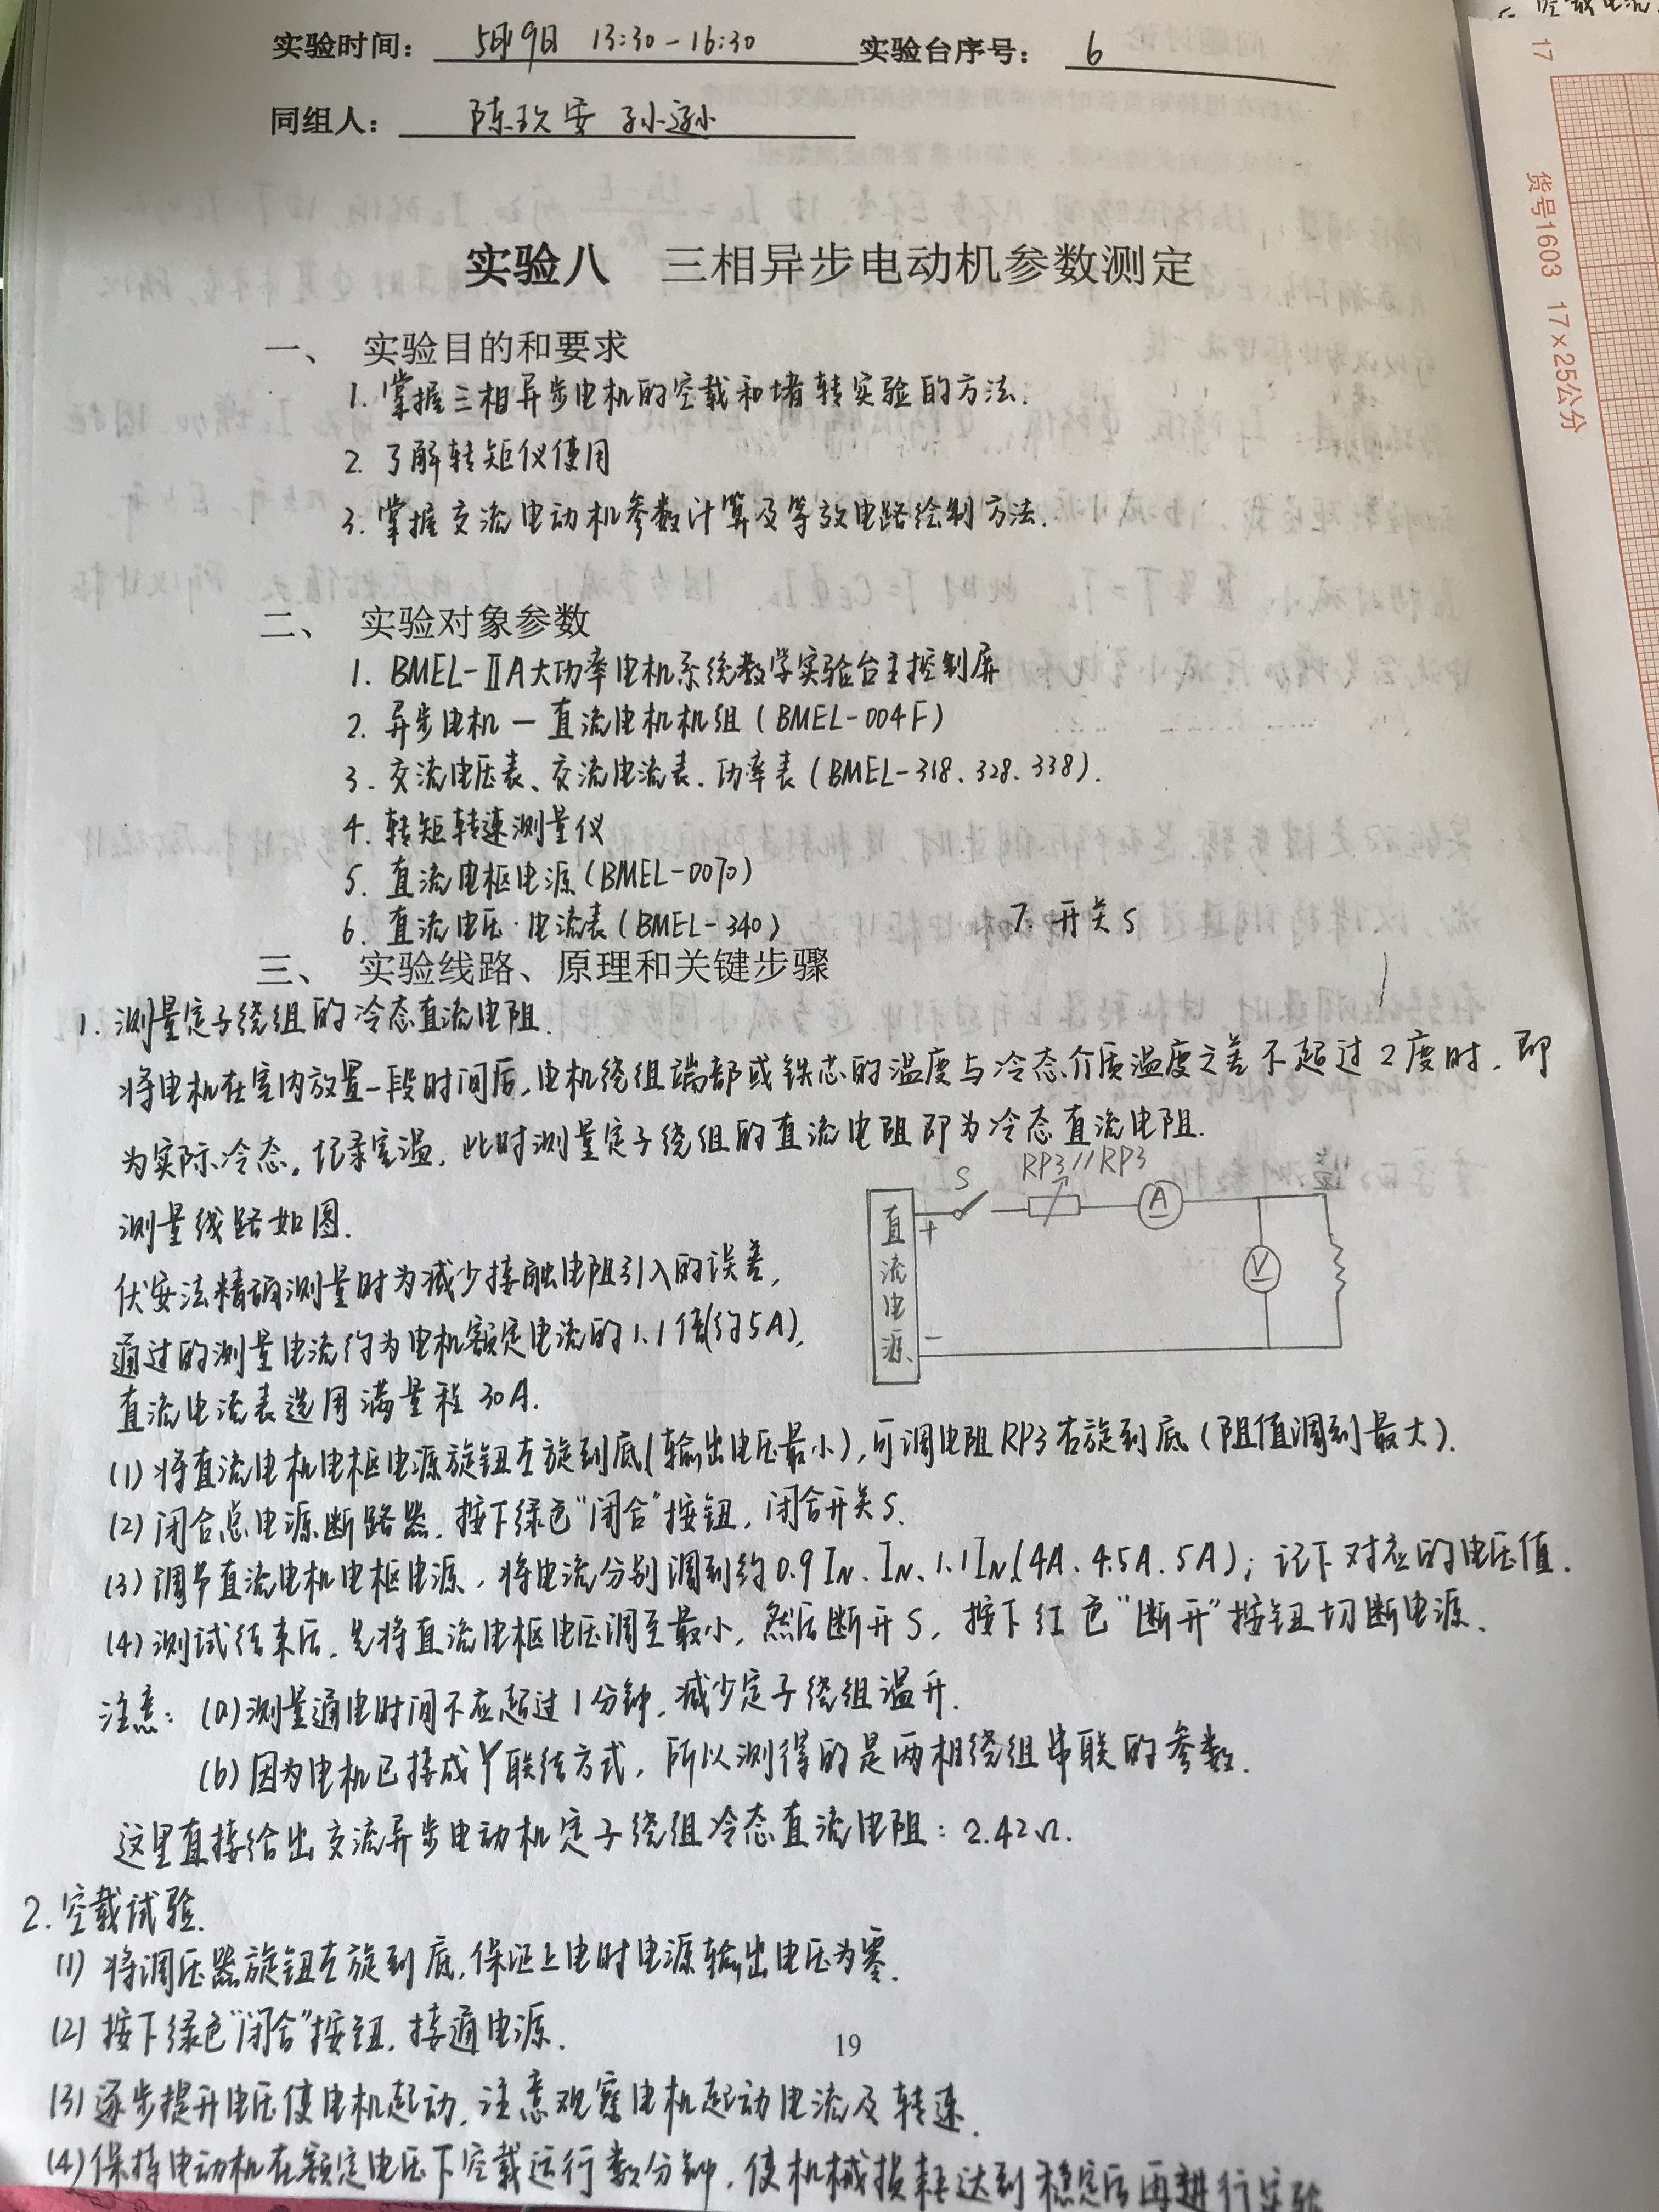 实验时间：5月9日 13:30-16:30 实验台序号：6
同组人：陈玖安 孙逊
实验八 三相异步电动机参数测定
一、 实验目的和要求
1. 掌握三相异步电机的空载和堵转实验的方法.
2. 了解转矩仪使用
3. 掌握交流电动机参数计算及等效电路绘制方法.
二、 实验对象参数
1. BMEL-ⅡA大功率电机系统教学实验台主控制屏
2. 异步电机—直流电机机组(BMEL-004F)
3. 交流电压表、交流电流表、功率表(BMEL-318、328、338).
4. 转矩转速测量仪
5. 直流电枢电源(BMEL-0070)
6. 直流电压·电流表(BMEL-340)
7. 开关S
三、 实验线路、原理和关键步骤
1. 测量定子绕组的冷态直流电阻.
将电机在室内放置一段时间后,电机绕组端部或铁芯的温度与冷态介质温度之差不超过2度时,即
为实际冷态。记录室温,此时测量定子绕组的直流电阻即为冷态直流电阻.
测量线路如图.
直流电源
+
-
S
RP3//RP3
A
V
伏安法精确测量时为减少接触电阻引入的误差,
通过的测量电流约为电机额定电流的1.1倍(约5A),
直流电流表选用满量程30A.
(1)将直流电机电枢电源旋钮左旋到底(输出电压最小),可调电阻RP3右旋到底(阻值调到最大).
(2)闭合总电源断路器,按下绿色"闭合"按钮,闭合开关S.
(3)调节直流电机电枢电源,将电流分别调到约0.9IN、IN、1.1IN(4A、4.5A、5A);记下对应的电压值.
(4)测试结束后,先将直流电枢电压调至最小,然后断开S,按下红色"断开"按钮切断电源.
注意:(a)测量通电时间不应超过1分钟,减少定子绕组温升.
(b)因为电机已接成Y联结方式,所以测得的是两相绕组串联的参数.
这里直接给出交流异步电动机定子绕组冷态直流电阻:2.42Ω.
2.空载试验.
(1) 将调压器旋钮左旋到底,保证上电时电源输出电压为零.
(2)按下绿色"闭合"按钮,接通电源.
(3)逐步提升电压使电机起动,注意观察电机起动电流及转速.
(4)保持电动机在额定电压下空载运行数分钟,使机械损耗达到稳定后再进行实验
19
17
货号1603 17×25公分